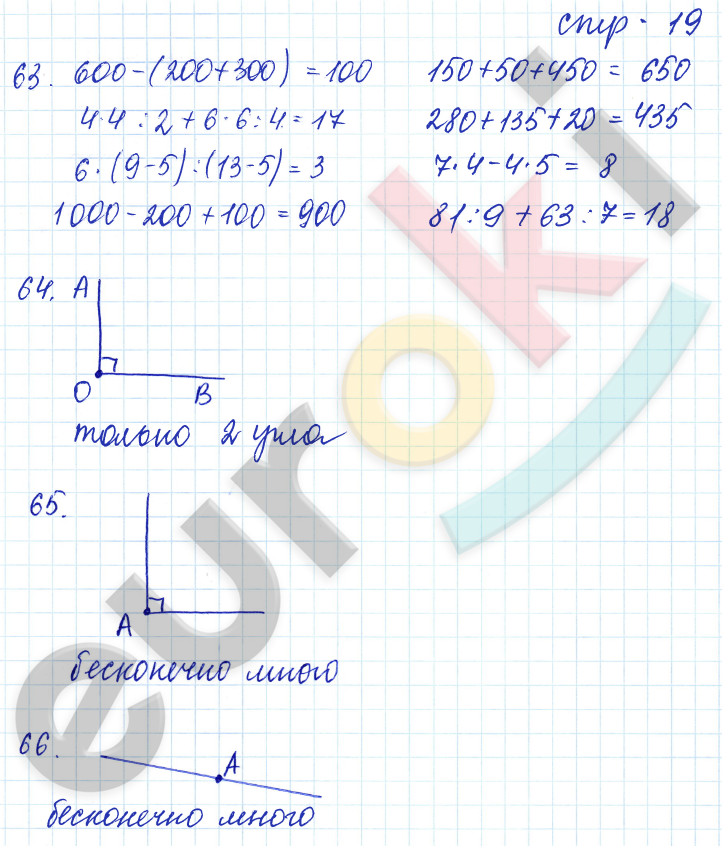 стр. 19
63. 600-(200+300) = 100 150+50+450 = 650
4·4:2+6·6:4=17 280+135+20=435
6·(9-5):(13-5)=3 7·4-4·5= 8
1000-200+100=900 81:9+63:7=18
64. A
O B
только 2 угла
65.
A
бесконечно много
66. A
бесконечно много
euroki